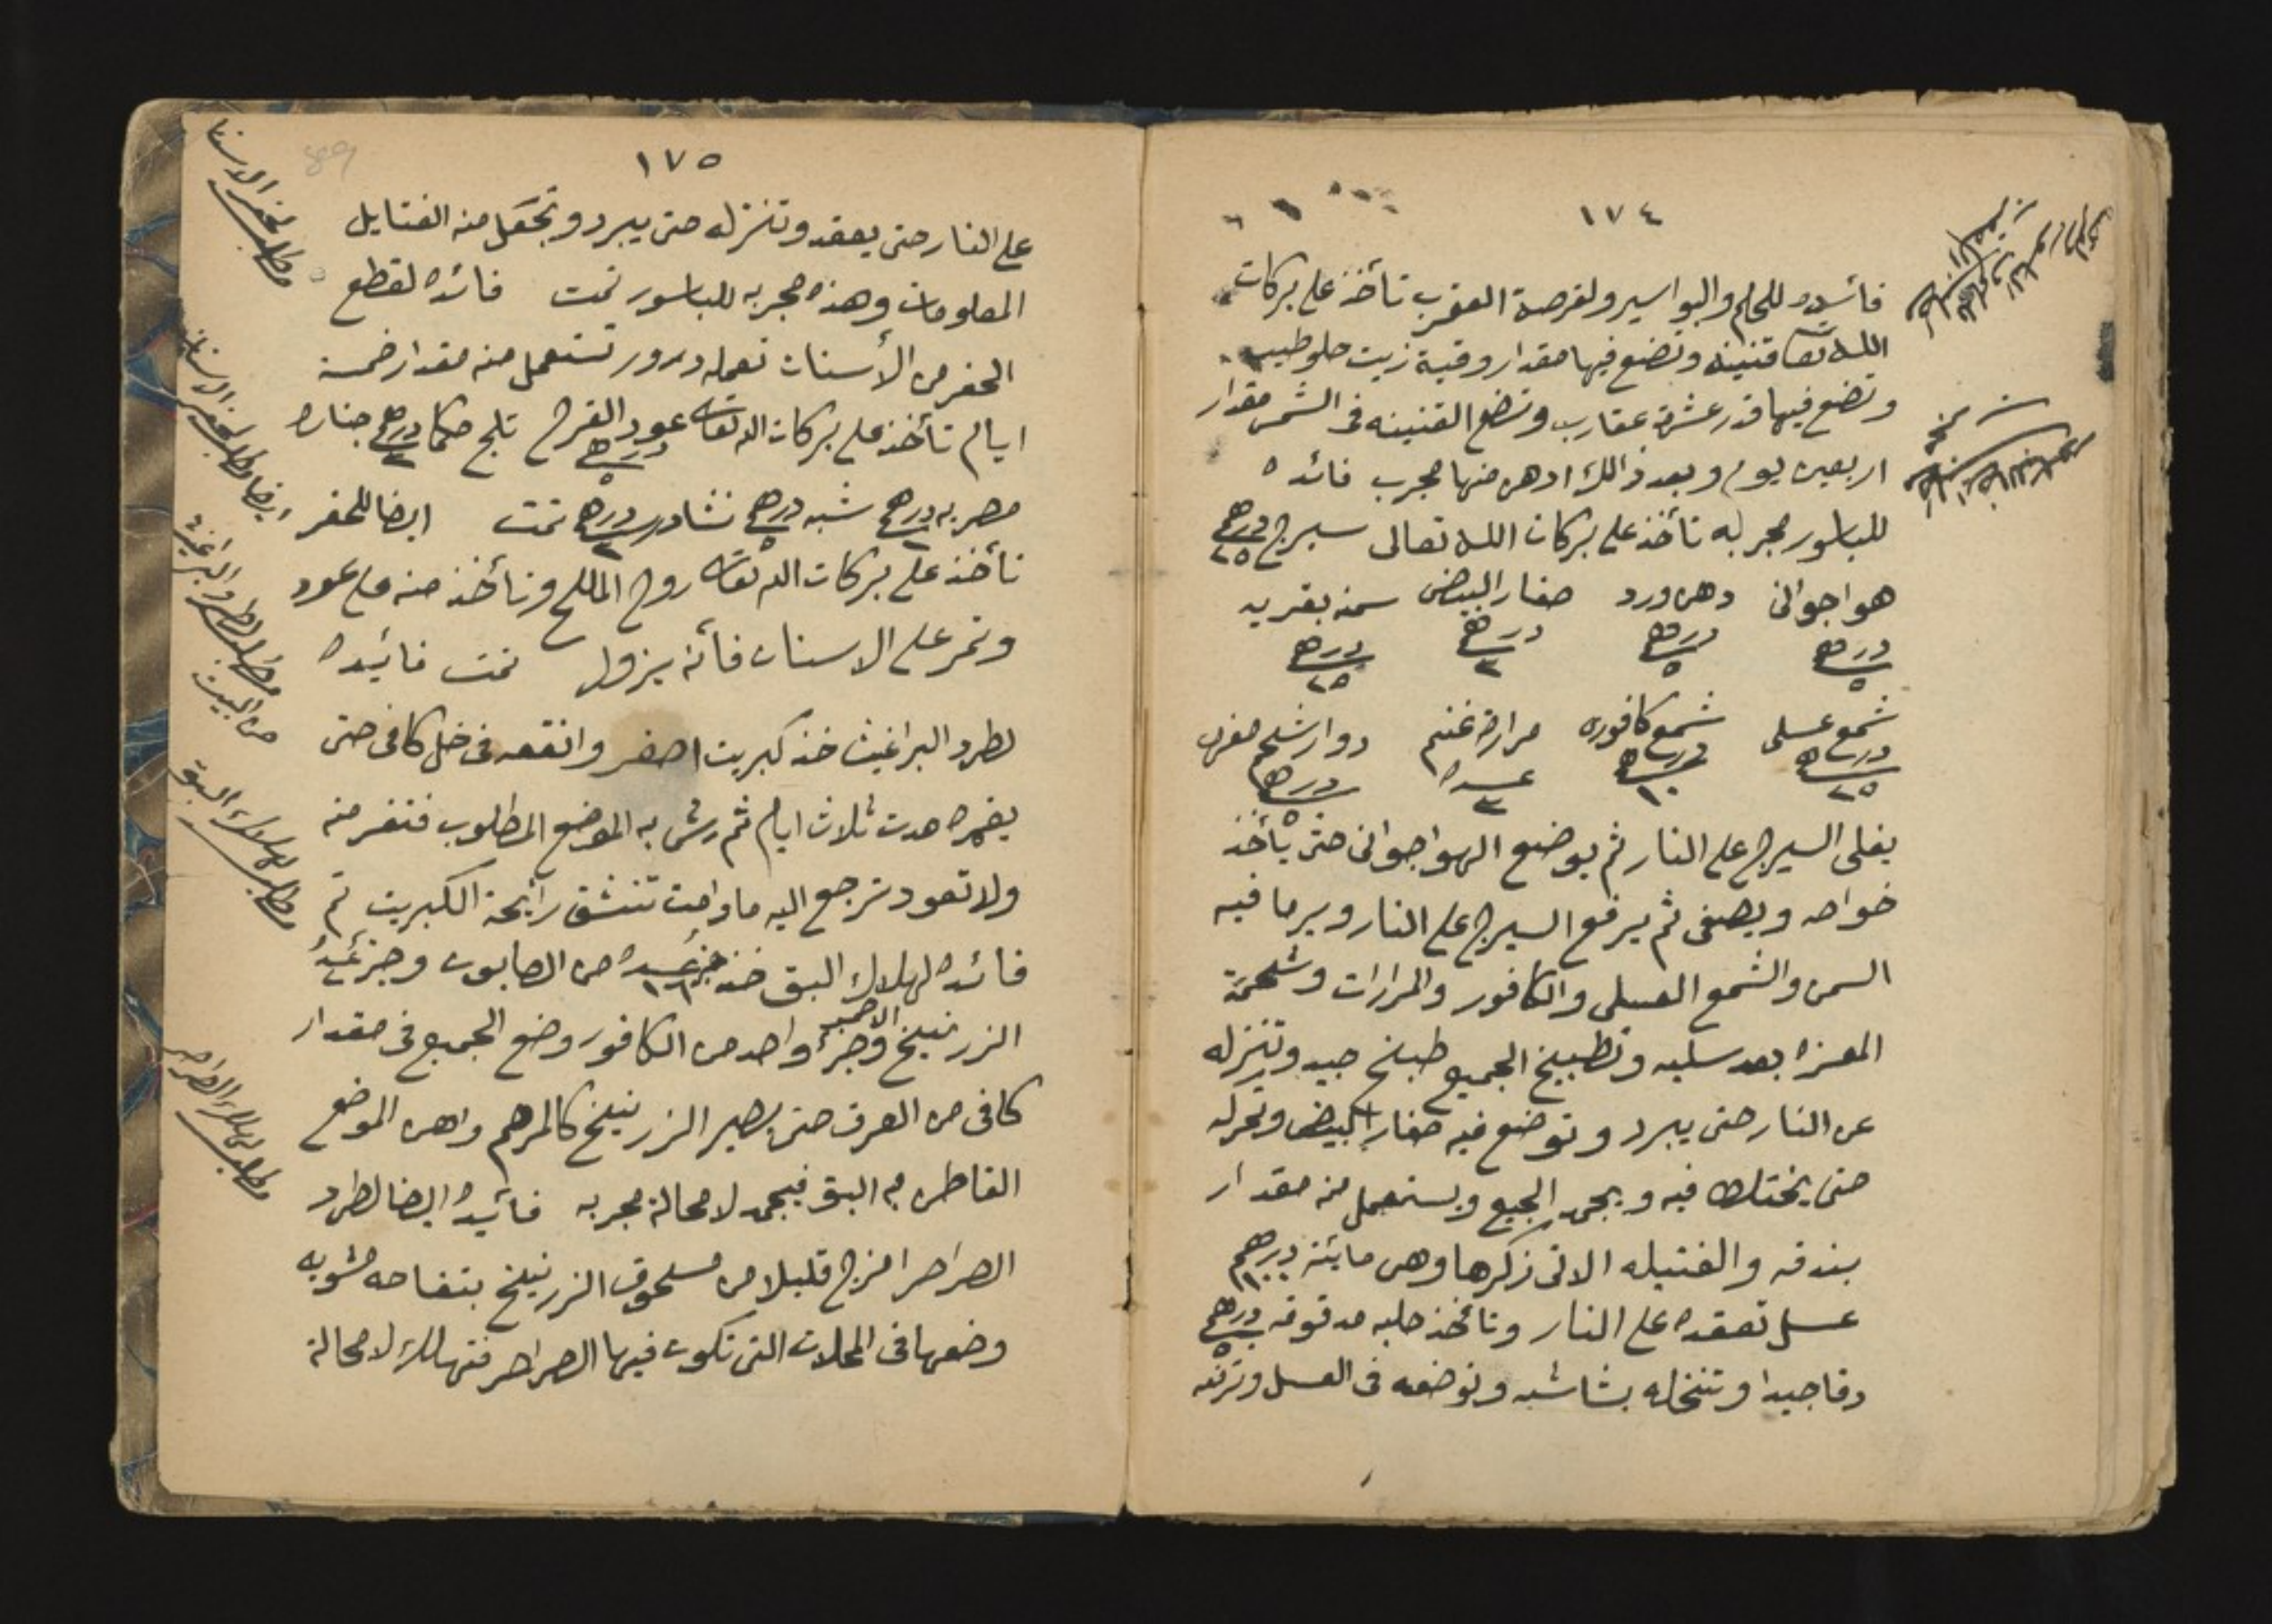 ١٧٤
فائيده للحلم والبواسير ولقرصة العقرب تأخذ على بركات
الله تعا قنينه وتضع فيها مقدار وقية زيت حلو طيب
وتضع فيها قدر عشرة عقارب وتضع القنينه فى الشمس مقدار
اربعين يوم وبعد ذالك ادهن منها مجرب فائده
للباسور مجربه تأخذ على بركات الله تعالى سيرج درهم ٢٥
هواجوانى دهن ورد صفار البيض سمنه بقريه
درهم ٥ درهم ٥ درهم ٣ درهم ٢٥
شمع عسلى شمع كافوره مرارة غنم دوار شحم معزه
درهم ٢٥ درهم ١٠ عدده ٣ درهم ٥
يغلى السيرج على النار ثم يوضع الهواجوانى حتى يأخذ
خواصه ويصفى ثم يرفع السيرج على النار ويرما فيه
السمن والشمع العسلى والكافور والمرارات وشحمة
المعزه بعد سليه وتطبيخ الجميع طبخ جيد وتنزله
عن النار حتى يبرد وتوضع فيه صفار البيض وتحركه
حتى يختلط فيه ويجمد الجميع ويستعمل منه مقدار
بندقه والفتيله الاتى زكرها وهى مائة درهم ١٠٠
عسل تعقده على النار وتأخذ حلبه مدقوقه درهم ٥
دقا جيدا وتنخله بشاشه وتوضعه فى العسل وترئه
١٧٥
89
على النار حتى يعقد وتنزله حتى يبرد وتجعل منه الفتايل
المعلومات وهذه مجربه للباسور تمت فائده لقطع
الحفر من الأسنان تعمله درور تستعمل منه مقدار خمسة
ايام تأخذ على بركات الله تعالى عود القرح درهم ٥ تلج حكما درهم ٣ جناره
مصريه درهم ٢ شبه درهم ٥ نشادر درهم ٢ تمت ايضا للحفر
تأخذ على بركات الله تعالى روح الملح وتأخذ منه على عود
وتمر على الاسنان فأنه يزول تمت فائيده
لطرد البراغيث خذ كبريت اصفر وانقعه فى خل كافى حتى
يغمره مدت ثلاث ايام ثم رش به الموضع المطلوب فتفر منه
ولا تعود ترجع اليه ما دامت تنشق رأيحة الكبريت تم
فائده لهلاك البق خذ جزء عدده ١٦ من الصابون وجزء عدد
الزرنيخ الاحمر وجزء واحد من الكافور وضع الجميع فى مقدار
كافى من العرق حتى يصير الزرنيخ كالمرهم وادهن الموضع
القاطن به البق فيجمد لا محالة مجربه فائيده ايضا لطرد
الصراصر امزج قليلا من مسحوق الزرنيخ بتفاحه مشويه
وضعها فى المحلات التى تكون فيها الصراصر فتهلك لا محالة
مطلب لحفر الاسنان
ايضا مطلب لحفر الاسنان
مطلب لطرد البراغيث
من البيت
مطلب لهلاك البق
مطلب لهلاك الصراصر